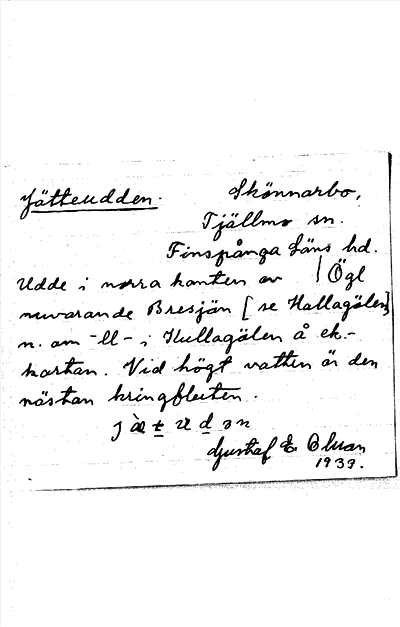 Jätteudden. Skönnarbo,
Tjällmo sn.
Finspånga läns hd.
Udde i norra kanten av | Ögl
nuvarande Bresjön [se Hallagölen]
n. om -ll- i Hullagölen å ek.-
kartan. Vid högt vatten är den
nästan kringfluten.
Gustaf E. Olsson
1939.